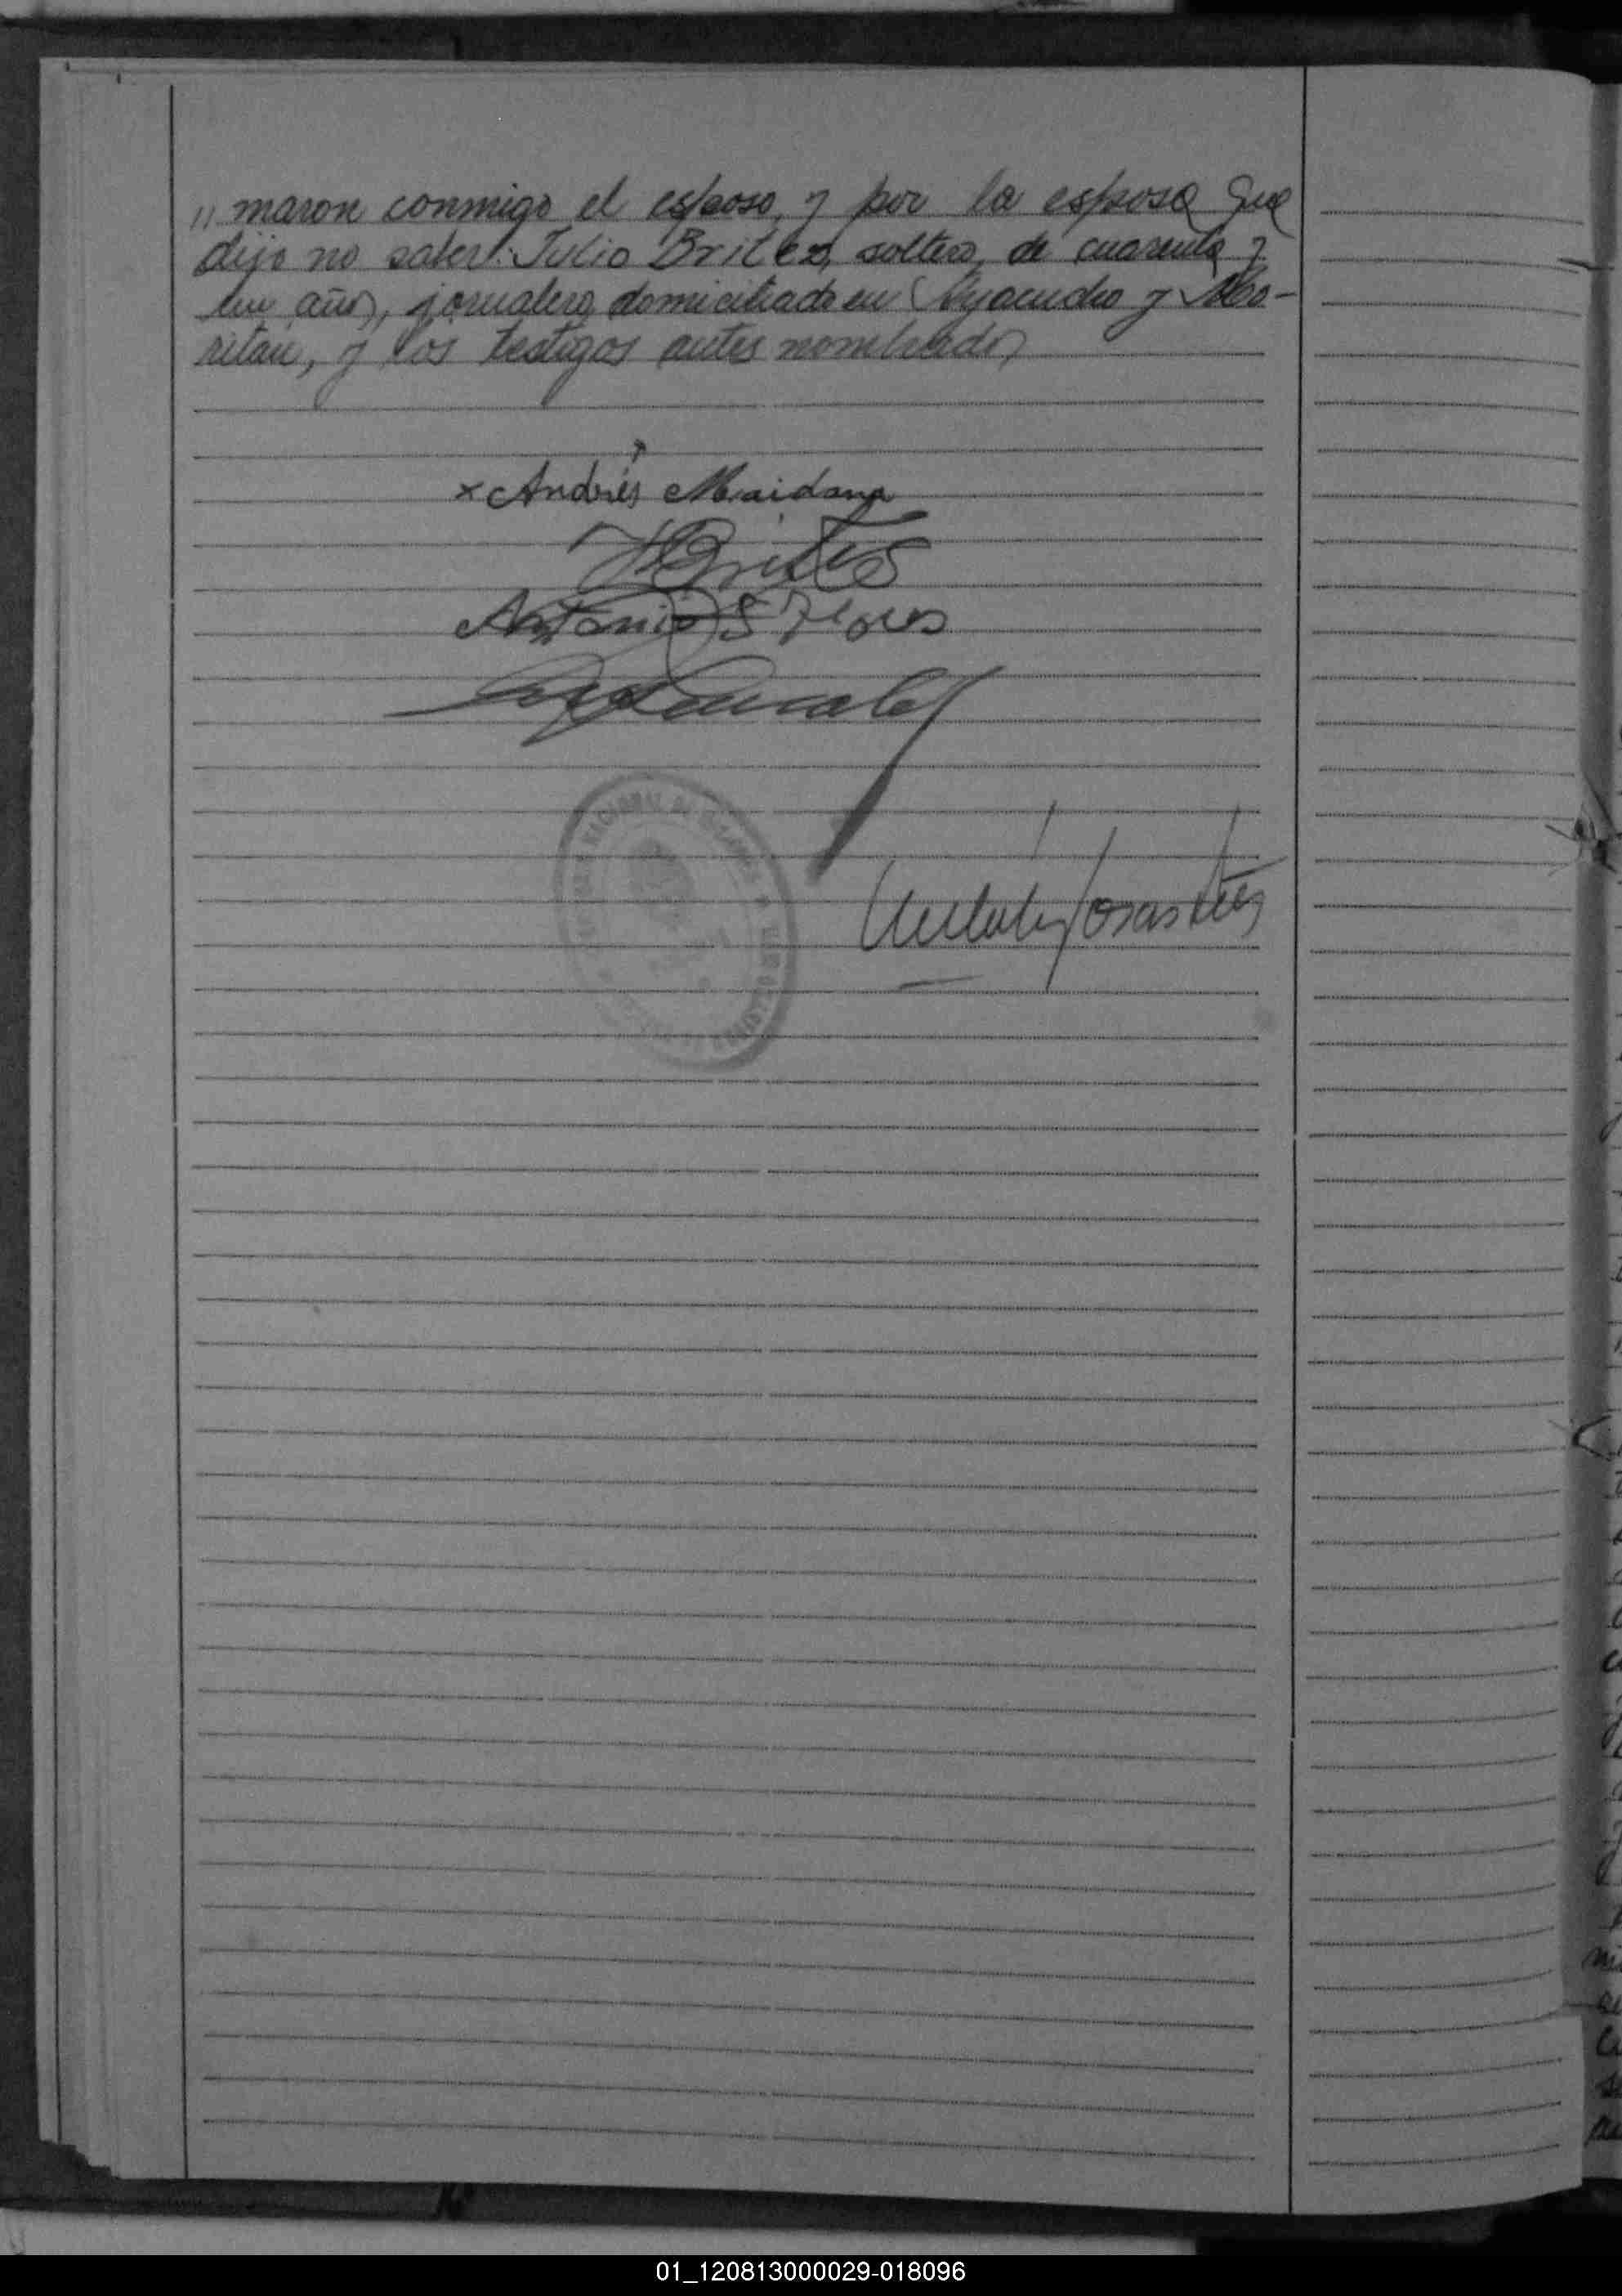 " maron conmigo el esposo, y por la esposa que
dijo no saber: Julio Britez, soltero, de cuarenta y
un años, jornalero, domiciliado en Ayacucho y Mo-
ritán, y los testigos antes nombrados
x Andrés Maidana
JBrites
Antonio S Flores
NACIONAL DE
01_120813000029-018096